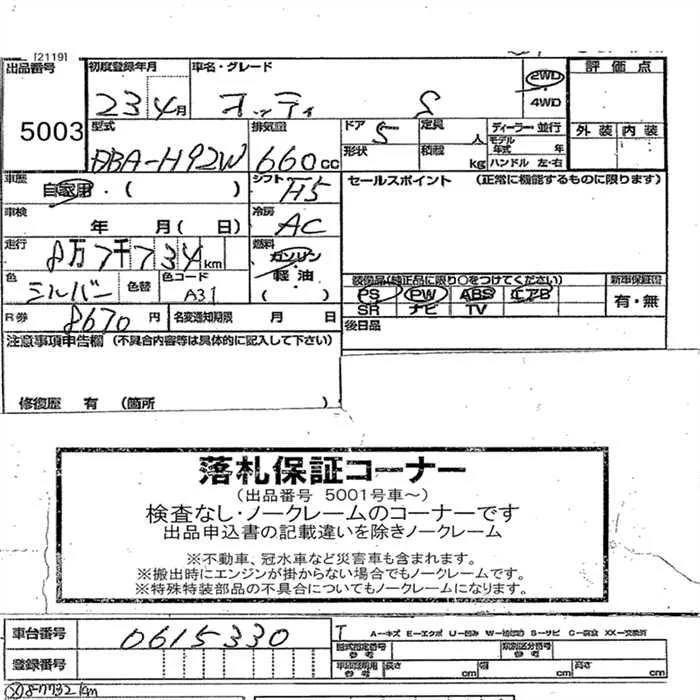 [2119]
出品番号 5003
初度登録年月 23 4月
車名・グレード オッティ S
2WD
4WD
評価点
外装 内装
型式 DBA-H92W
排気量 660cc
ドア 5
形状
定員 人
積載 kg
ディーラー・並行
モデル年式 年
ハンドル 左・右
車歴 自家用・( )
シフト H5
セールスポイント (正常に機能するものに限ります)
車検 年 月( 日)
冷房 AC
走行 8万7千734km
燃料 ガソリン
軽・油
( )
色 シルバー 色替
色コード A31
装備品(純正品に限り○をつけてください)
PS PW ABS エアB
SR ナビ TV
新車保証書
有・無
R券 8670円
名変通知期限 月 日
後日品
注意事項申告欄 (不具合内容等は具体的に記入して下さい)
修復歴 有 (箇所 )
落札保証コーナー
(出品番号 5001号車~)
検査なし・ノークレームのコーナーです
出品申込書の記載違いを除きノークレーム
※不動車、冠水車など災害車も含まれます。
※搬出時にエンジンが掛からない場合でもノークレームです。
※特殊特装部品の不具合についてもノークレームになります。
車台番号 0615330
T A-キズ E-エクボ U-凹み S-サビ C-腐食 XX-交換済
登録番号
型式指定番号 参考
類別区分番号 参考
長さ cm 幅 cm 高さ cm
87732km